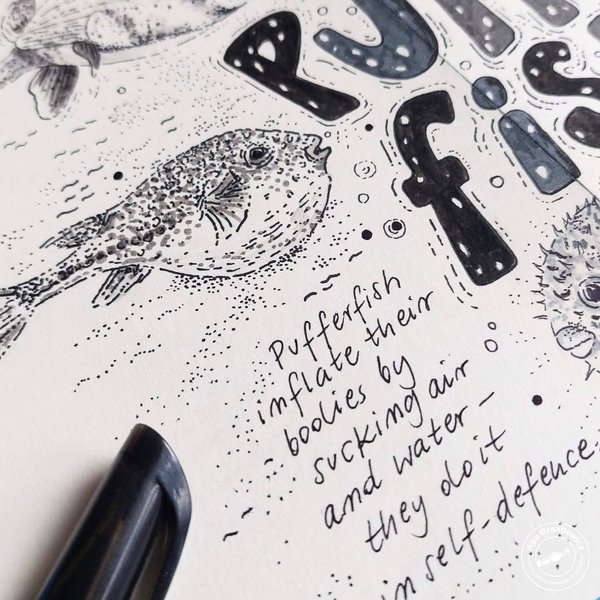 Pu
fis
Pufferfish
inflate their
bodies by
sucking air
and water –
they do it
in self-defence.